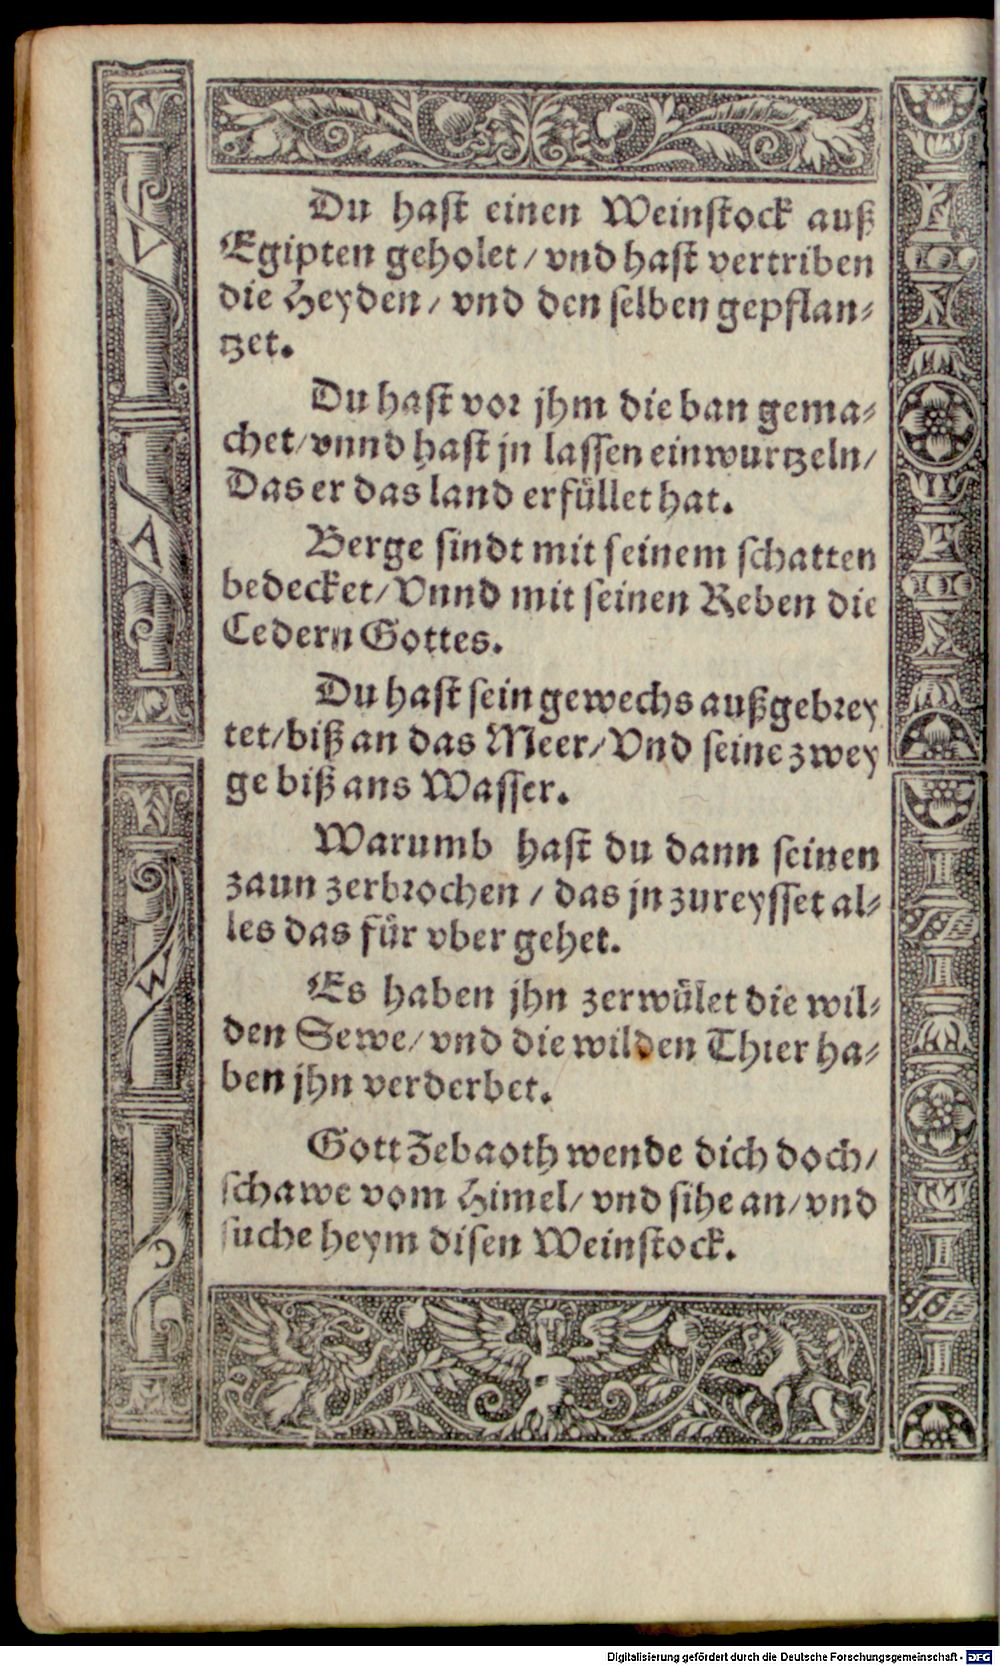 Du hast einen Weinstock auß
Egipten geholet / vnd hast vertriben
die Heyden / vnd den selben gepflan⸗
tzet.
Du hast vor jhm die ban gema⸗
chet / vnnd hast jn lassen einwurtzeln /
Das er das land erfüllet hat.
Berge sindt mit seinem schatten
bedecket / Vnnd mit seinen Reben die
Cedern Gottes.
Du hast sein gewechs außgebrey
tet / biß an das Meer / Vnd seine zwey
ge biß ans Wasser.
Warumb hast du dann seinen
zaun zerbrochen / das jn zureysset al⸗
les das für vber gehet.
Es haben jhn zerwület die wil⸗
den Sewe / vnd die wilden Thier ha⸗
ben jhn verderbet.
Gott Zebaoth wende dich doch /
schawe vom Himel / vnd sihe an / vnd
suche heym disen Weinstock.
Digitalisierung gefördert durch die Deutsche Forschungsgemeinschaft - DFG